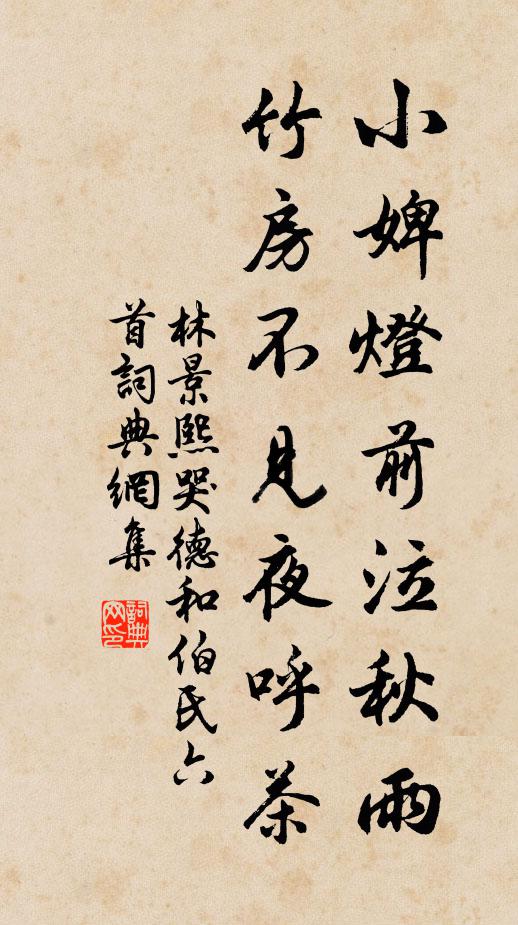 小婢燈前泣秋雨
竹房不見夜呼茶
林景熙哭德和伯氏六
首詞典網集
詞典
网印